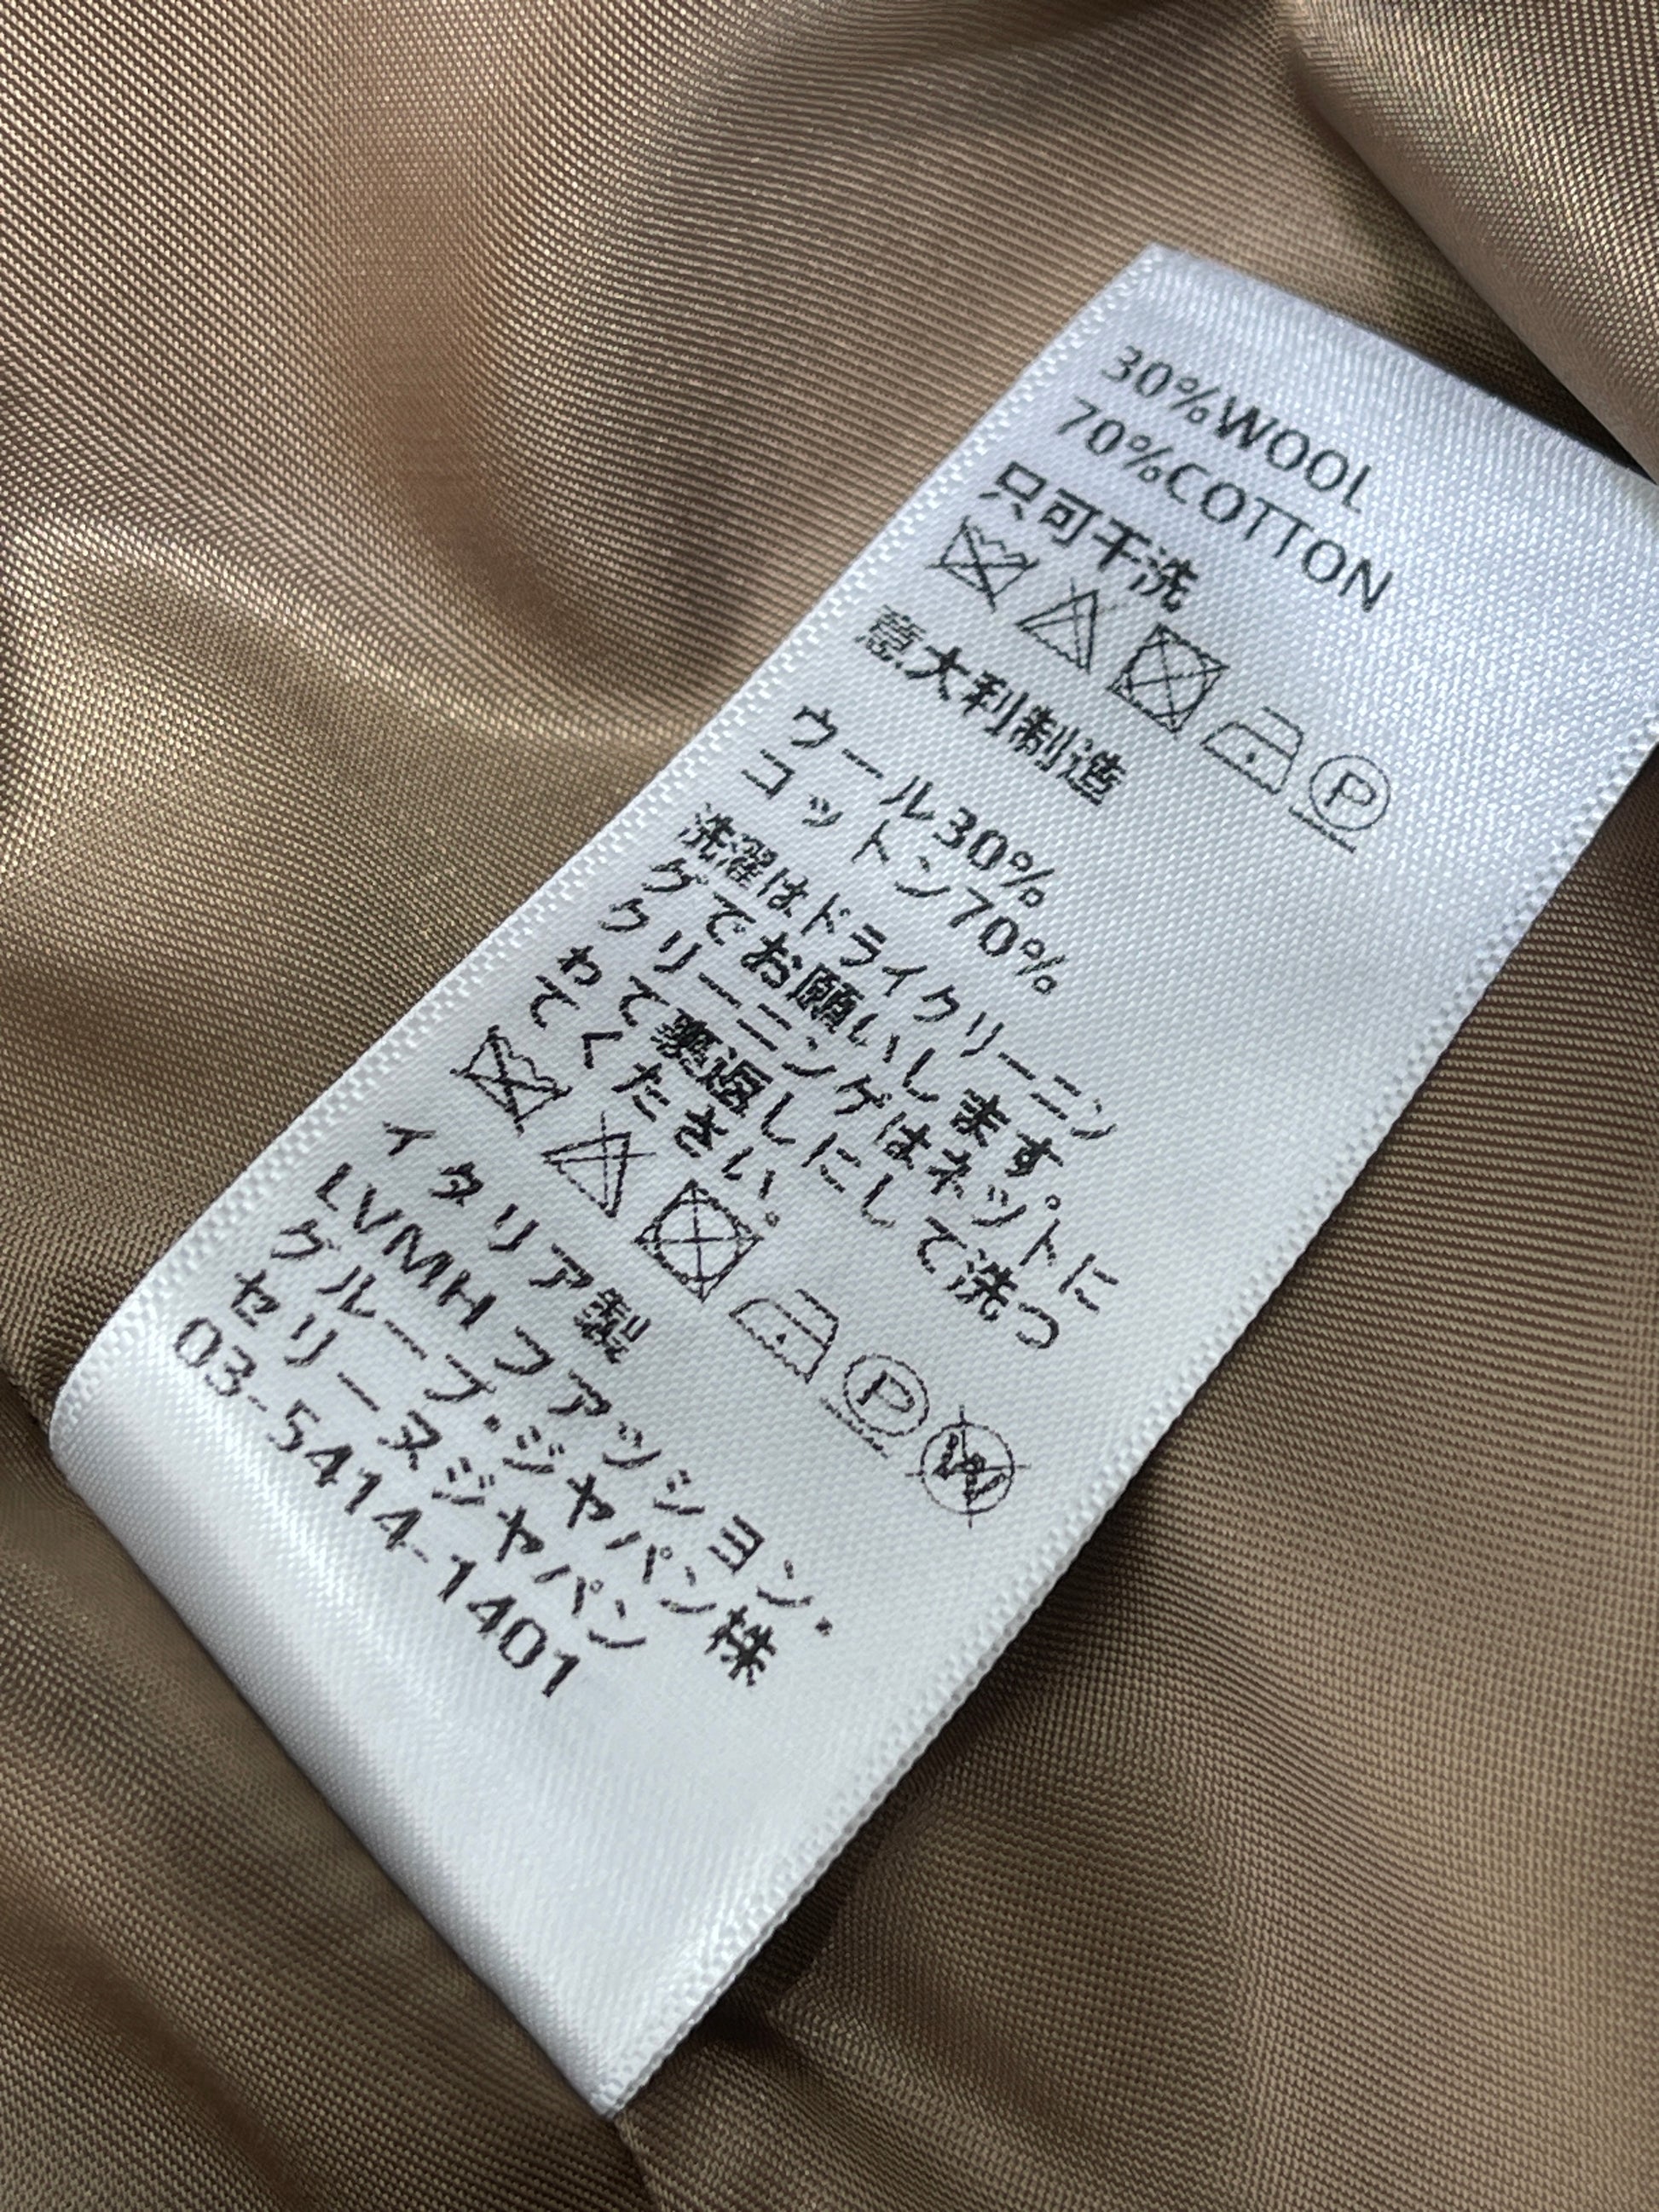 30%WOOL
70%COTTON
只可干洗
P
意大利制造
ウール30%
コットン70%
洗濯はドライクリーニン
グでお願いします。
クリーニングはネットに
わて裏返しにして洗つ
てください。
P W
イタリア製
LVMHフアツシヨン・
グループ・ジヤパン株
セリーヌジヤパン
03-5414-1401